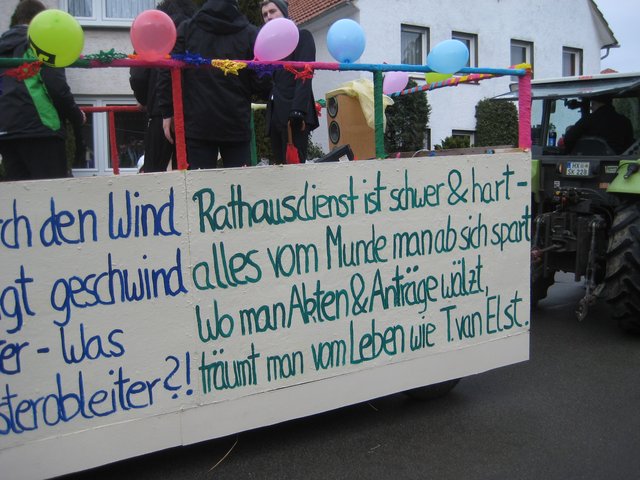 ch den Wind
gt geschwind
er - Was
sterableiter?!
Rathausdienst ist schwer & hart -
alles vom Munde man ab sich spart
Wo man Akten & Anträge wälzt,
träumt man vom Leben wie T. van Elst.